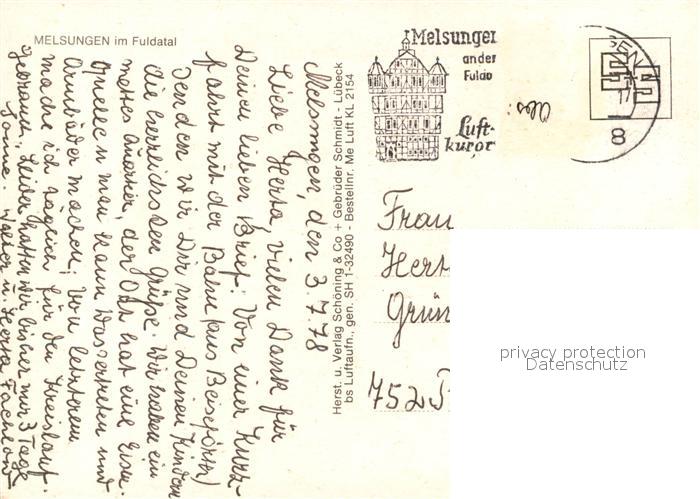 MELSUNGEN im Fuldatal
Melsungen, den 3.7.78
Liebe Herta, vielen Dank für
Deinen lieben Brief. Von einer Kurz-
fahrt mit der Bahn (aus Beiseförth)
senden wir Dir und Deinen Kindern
die herzlichsten Grüße. Wir haben ein
nettes Quartier, der Ort hat eine Eisen-
quelle u man kann Wassertreten und
Armbäder machen; von letzterem
mache ich täglich für den Kreislauf
Gebrauch, Leider hatten wir bisher nur 3 Tage
Sonne. Walter u. Herta
Herst. u. Verlag Schöning & Co + Gebrüder Schmidt - Lübeck
bs Luftaufn., gen. SH 1-32490 - Bestellnr. Me Luft KL 2154
Melsungen
an der
Fulda
Luft-
kurort
8
Frau
Hert
Grün
752
privacy protection
Datenschutz